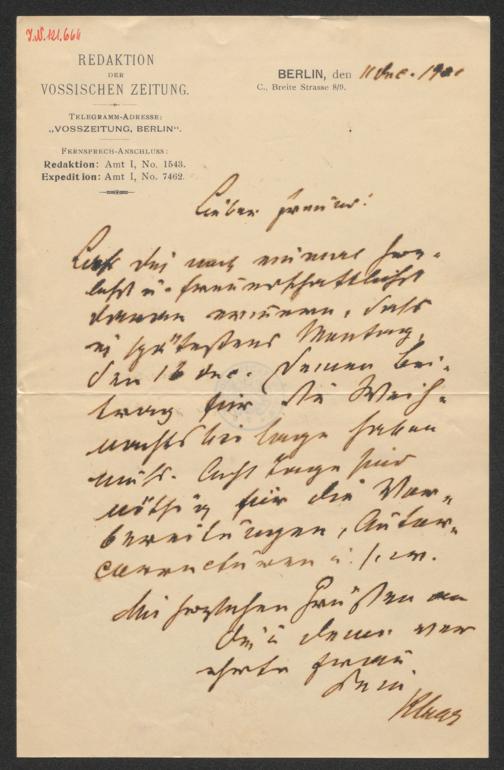 J.N. 121.666
REDAKTION
DER
VOSSISCHEN ZEITUNG.
TELEGRAMM-ADRESSE:
„VOSSZEITUNG, BERLIN“.
FERNSPRECH-ANSCHLUSS:
Redaktion: Amt I, No. 1543.
Expedition: Amt I, No. 7462.
BERLIN, den 11 Dec. 190
C., Breite Strasse 8/9.
Lieber Freund!
Laß dich noch einmal herz-
lichst u. freundschaftlichst
daran erinnern, dass
ich spätestens Montag,
den 16 Dec. Deinen Bei-
trag für die Weih-
nachtsbeilage haben
muß. Acht Tage sind
nöthig für die Vor-
bereitungen, Autor-
correcturen u. s. w.
Mit herzlichen Grüßen an
Dich u. Deine ver
ehrte Frau
Dein
Klaar